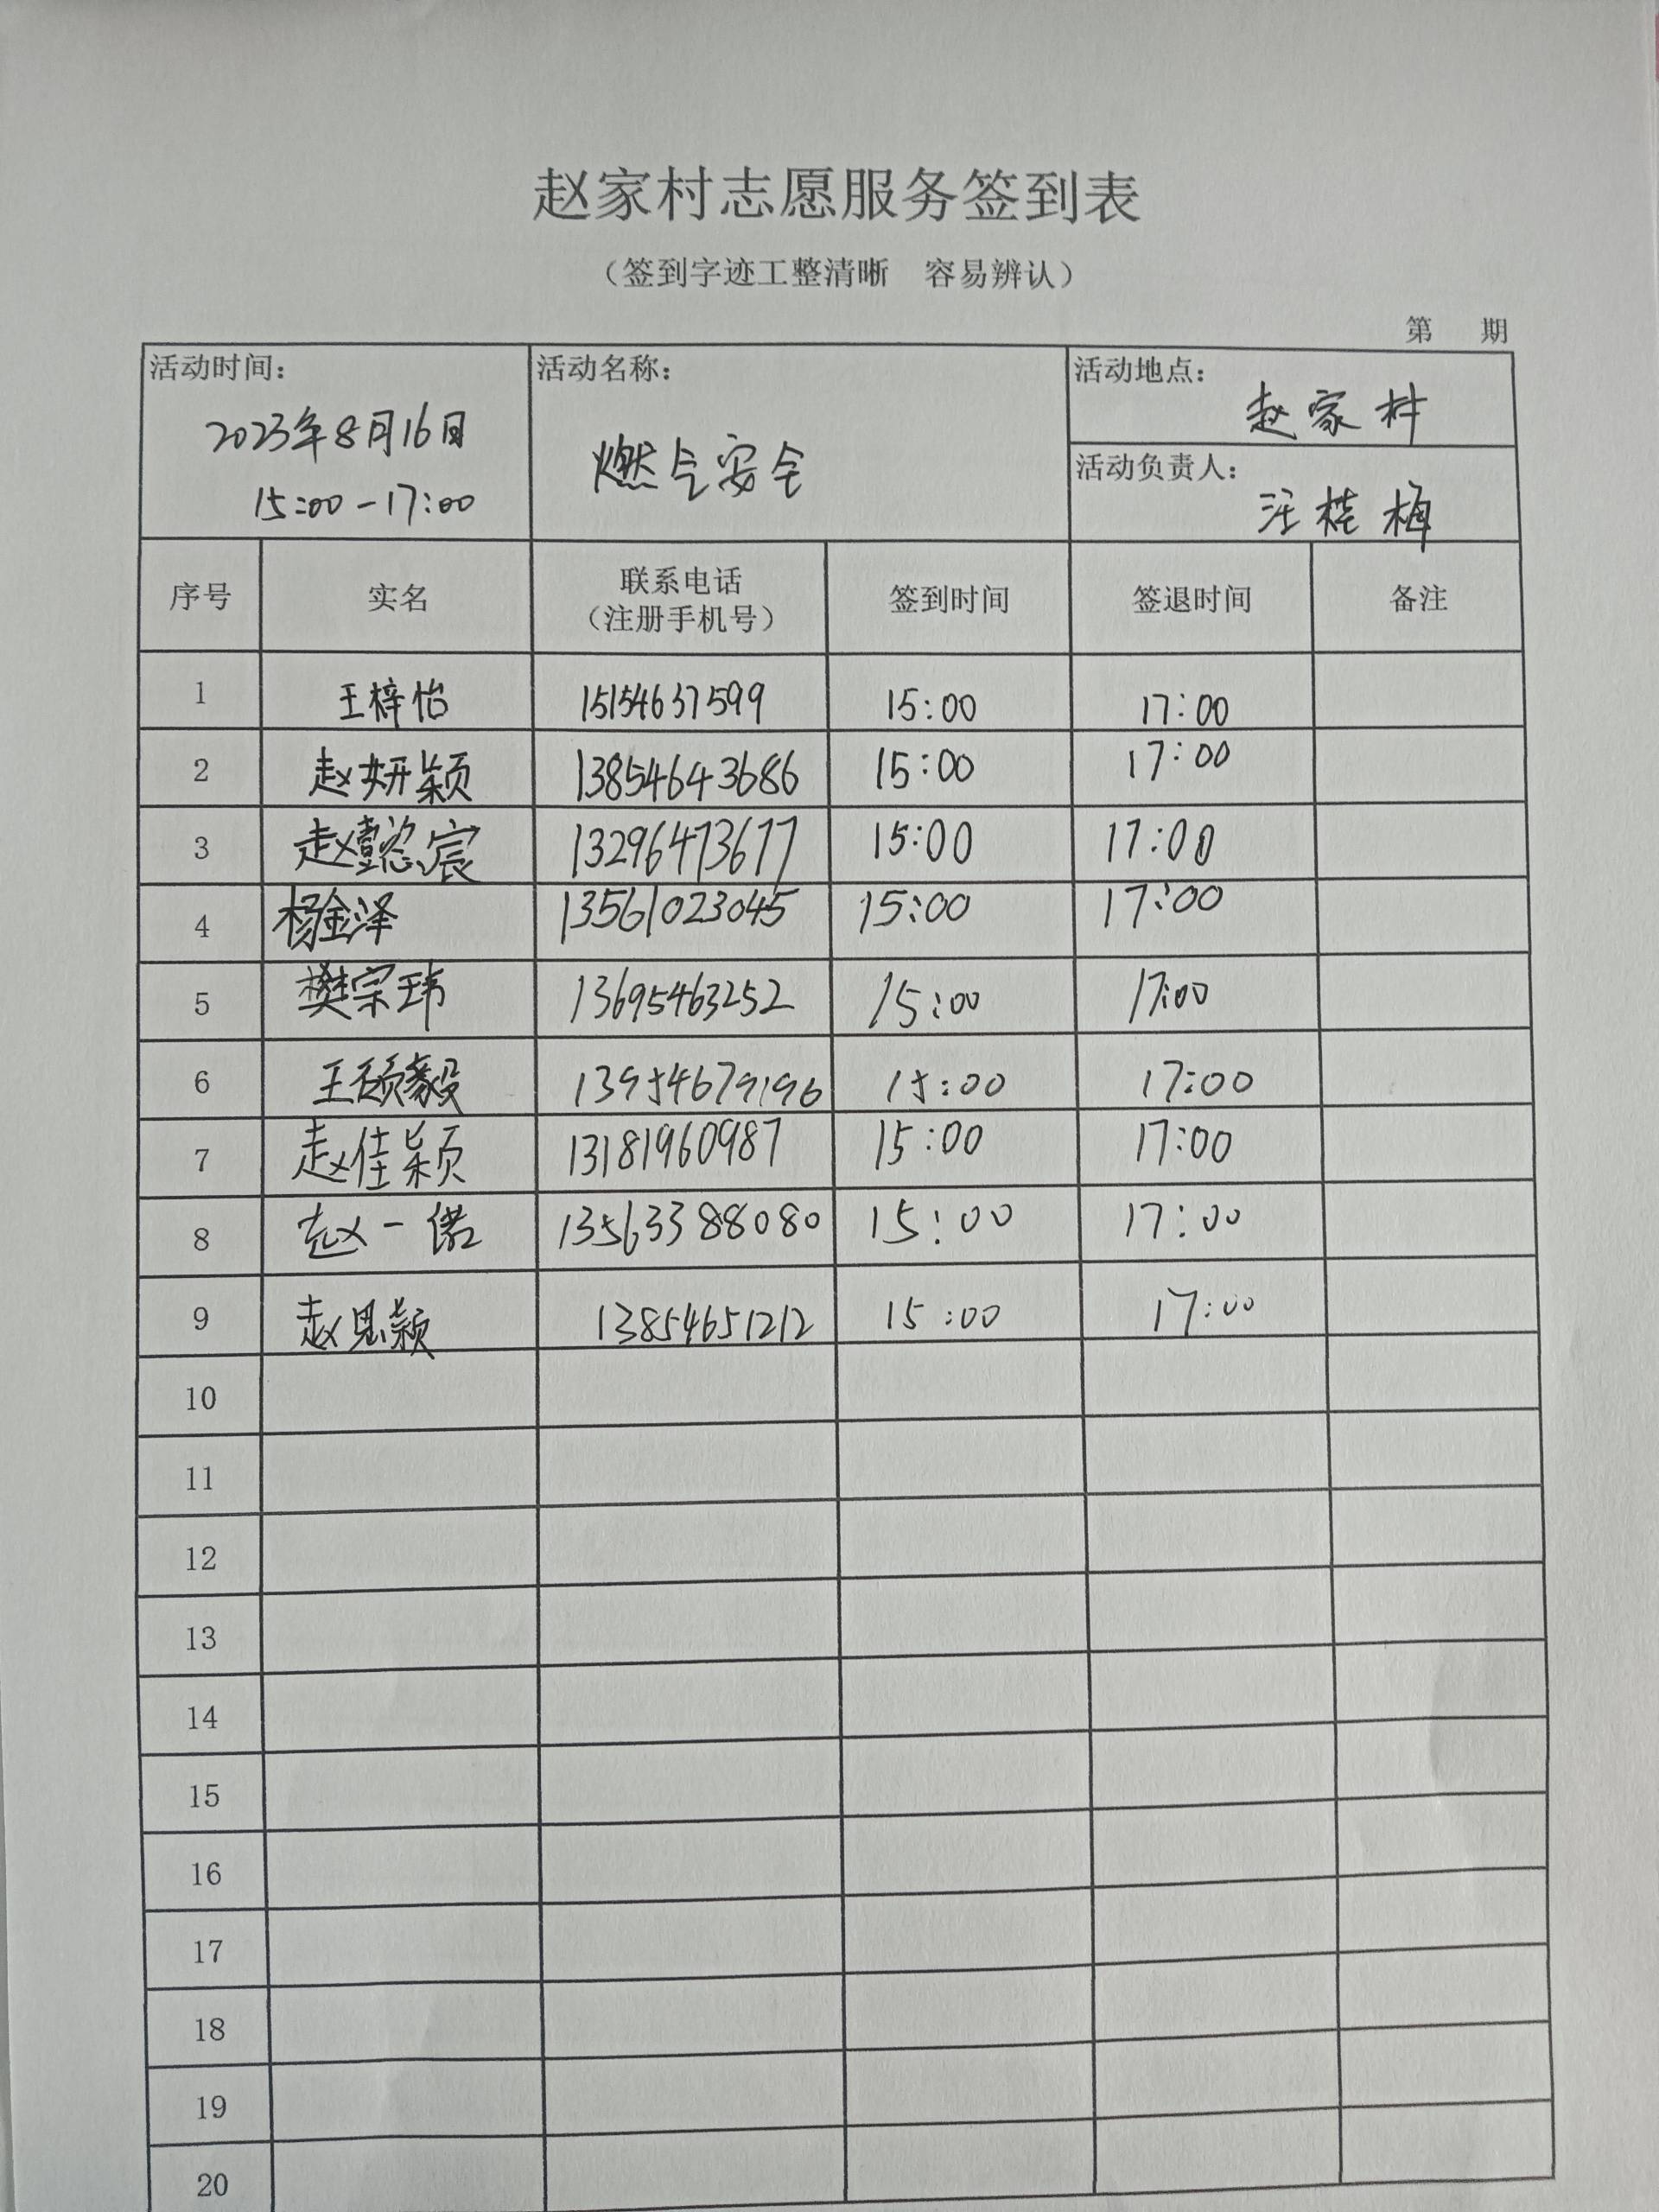 赵家村志愿服务签到表
（签到字迹工整清晰 容易辨认）
第 期
活动时间：
2023年8月16日
15:00-17:00
活动名称：
燃气安全
活动地点：
赵家村
活动负责人：
汪桂梅
序号 实名 联系电话（注册手机号） 签到时间 签退时间 备注
1 王梓怡 15154637599 15:00 17:00
2 赵妍颖 13854643686 15:00 17:00
3 赵懿宸 13296473677 15:00 17:00
4 杨金泽 13561023045 15:00 17:00
5 樊宗玮 13695463252 15:00 17:00
6 王硕毅 13954679196 15:00 17:00
7 赵佳颖 13181960987 15:00 17:00
8 赵一诺 13563388080 15:00 17:00
9 赵思颖 13854651212 15:00 17:00
10
11
12
13
14
15
16
17
18
19
20